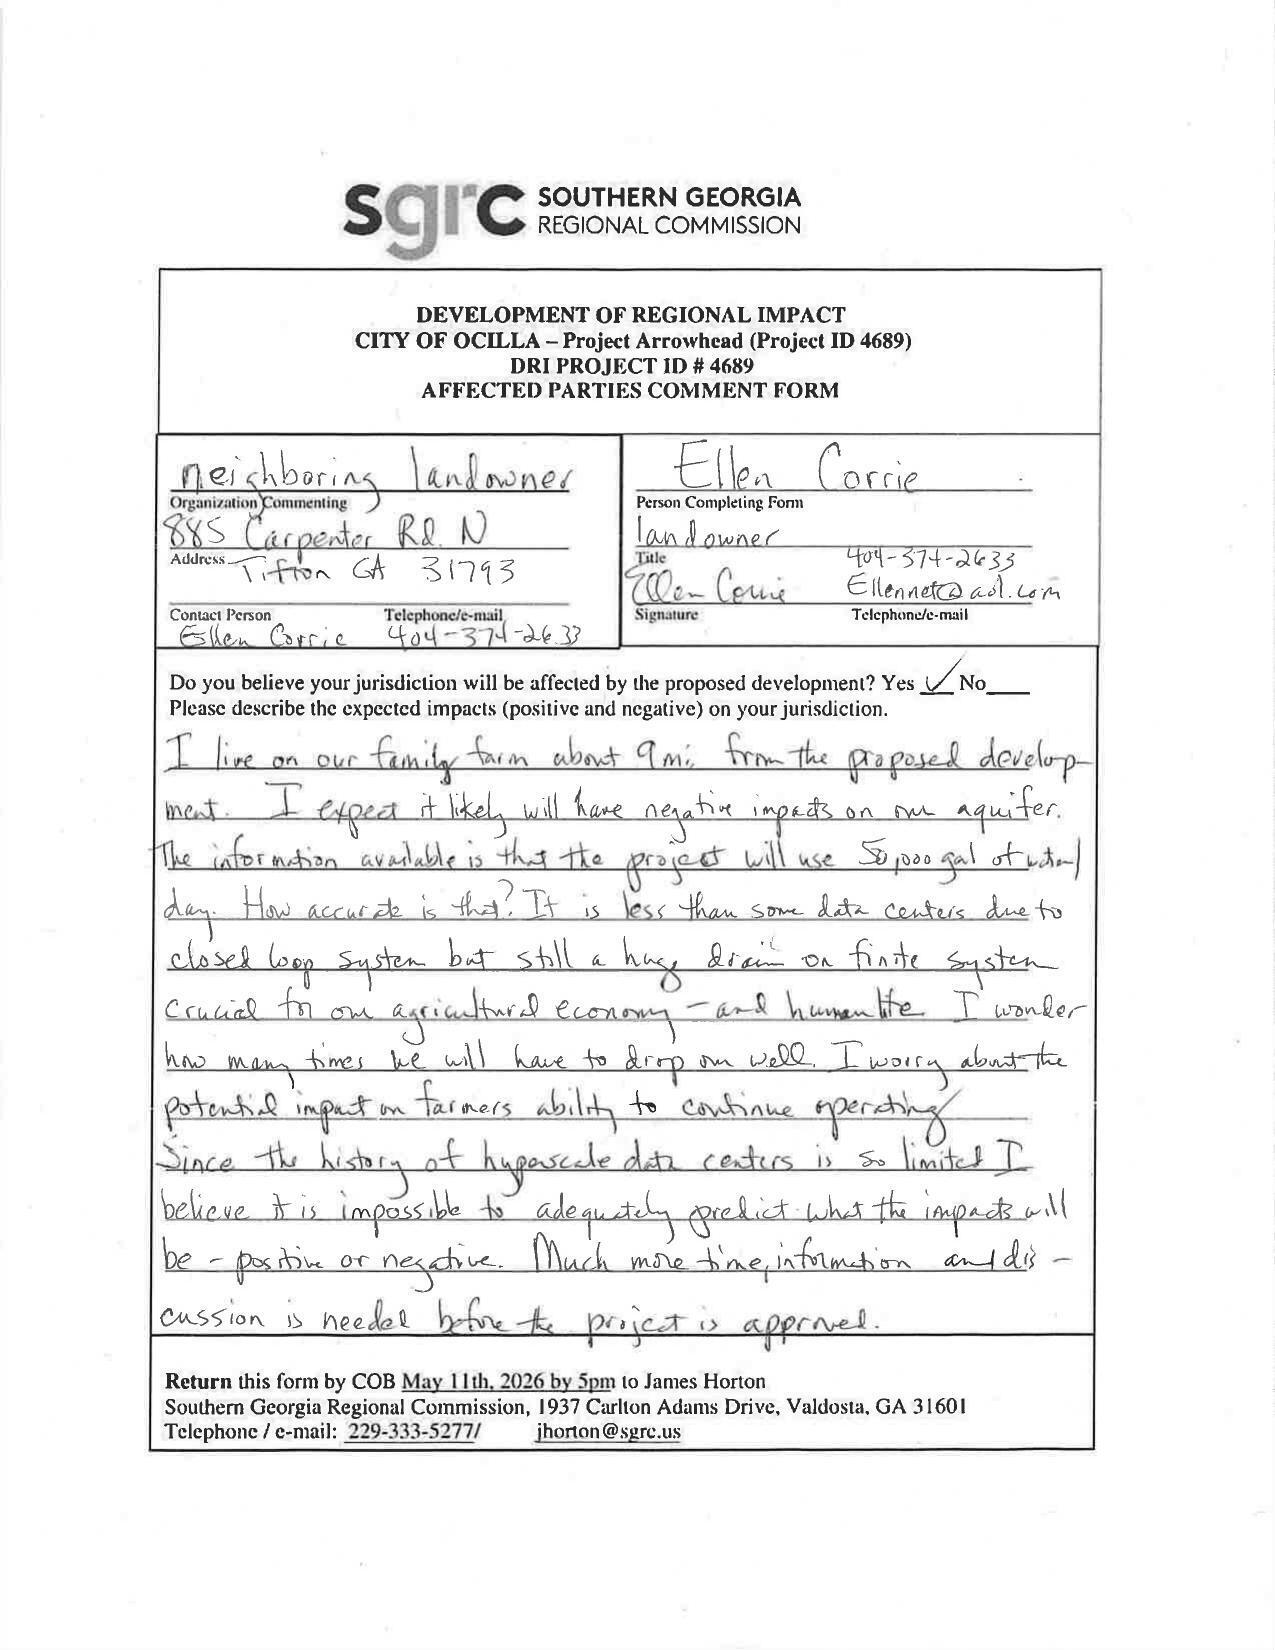 sgrc SOUTHERN GEORGIA
REGIONAL COMMISSION
DEVELOPMENT OF REGIONAL IMPACT
CITY OF OCILLA – Project Arrowhead (Project ID 4689)
DRI PROJECT ID # 4689
AFFECTED PARTIES COMMENT FORM
neighboring landowner
Organization Commenting
885 Carpenter Rd. N
Address
Tifton GA 31793
Contact Person Telephone/e-mail
Ellen Corrie 404-374-2633
Ellen Corrie
Person Completing Form
landowner
Title
404-374-2633
Ellen Corrie Ellennet@aol.com
Signature Telephone/e-mail
Do you believe your jurisdiction will be affected by the proposed development? Yes ✓ No___
Please describe the expected impacts (positive and negative) on your jurisdiction.
I live on our family farm about 9 mi. from the proposed develop-
ment. I expect it likely will have negative impacts on our aquifer.
The information available is that the project will use 50,000 gal of water/
day. How accurate is that? It is less than some data centers due to
closed loop system but still a huge drain on finite system
crucial for our agricultural economy – and human life. I wonder
how many times we will have to drop our well. I worry about the
potential impact on farmers ability to continue operating
Since the history of hyperscale data centers is so limited I
believe it is impossible to adequately predict what the impacts will
be – positive or negative. Much more time, information and dis-
cussion is needed before the project is approved.
Return this form by COB May 11th, 2026 by 5pm to James Horton
Southern Georgia Regional Commission, 1937 Carlton Adams Drive, Valdosta, GA 31601
Telephone / e-mail: 229-333-5277/ jhorton@sgrc.us